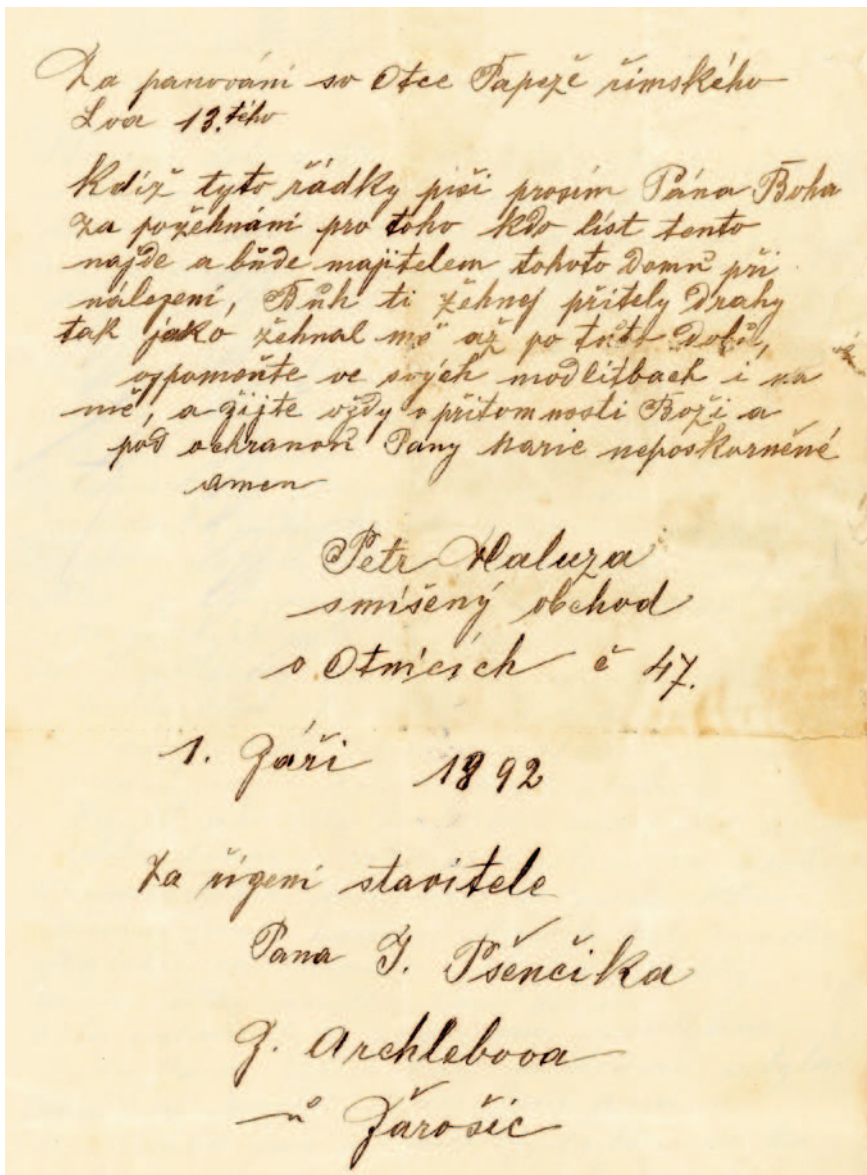 Za panování sv Otce Papeže římského
Lva 13.tého
Když tyto řádky píši prosím Pána Boha
za požehnání pro toho kdo líst tento
najde a bůde majitelem tohoto Domů při
nálezení, Bůh ti žehnej přítely drahy
tak jako žehnal mě až po tůto Dobů,
vzpomeňte ve svých modlítbach i na
mě, a žijte vždy v přítomnosti Boži a
pod ochranoů Pany Marie neposkvrněné
amen
Petr Haluza
smíšený obchod
v Otnicích č 47.
1. Záři 1892
Za řízení stavitele
Pana J. Pšenčika
Z. Archlebova
ů Žarošic